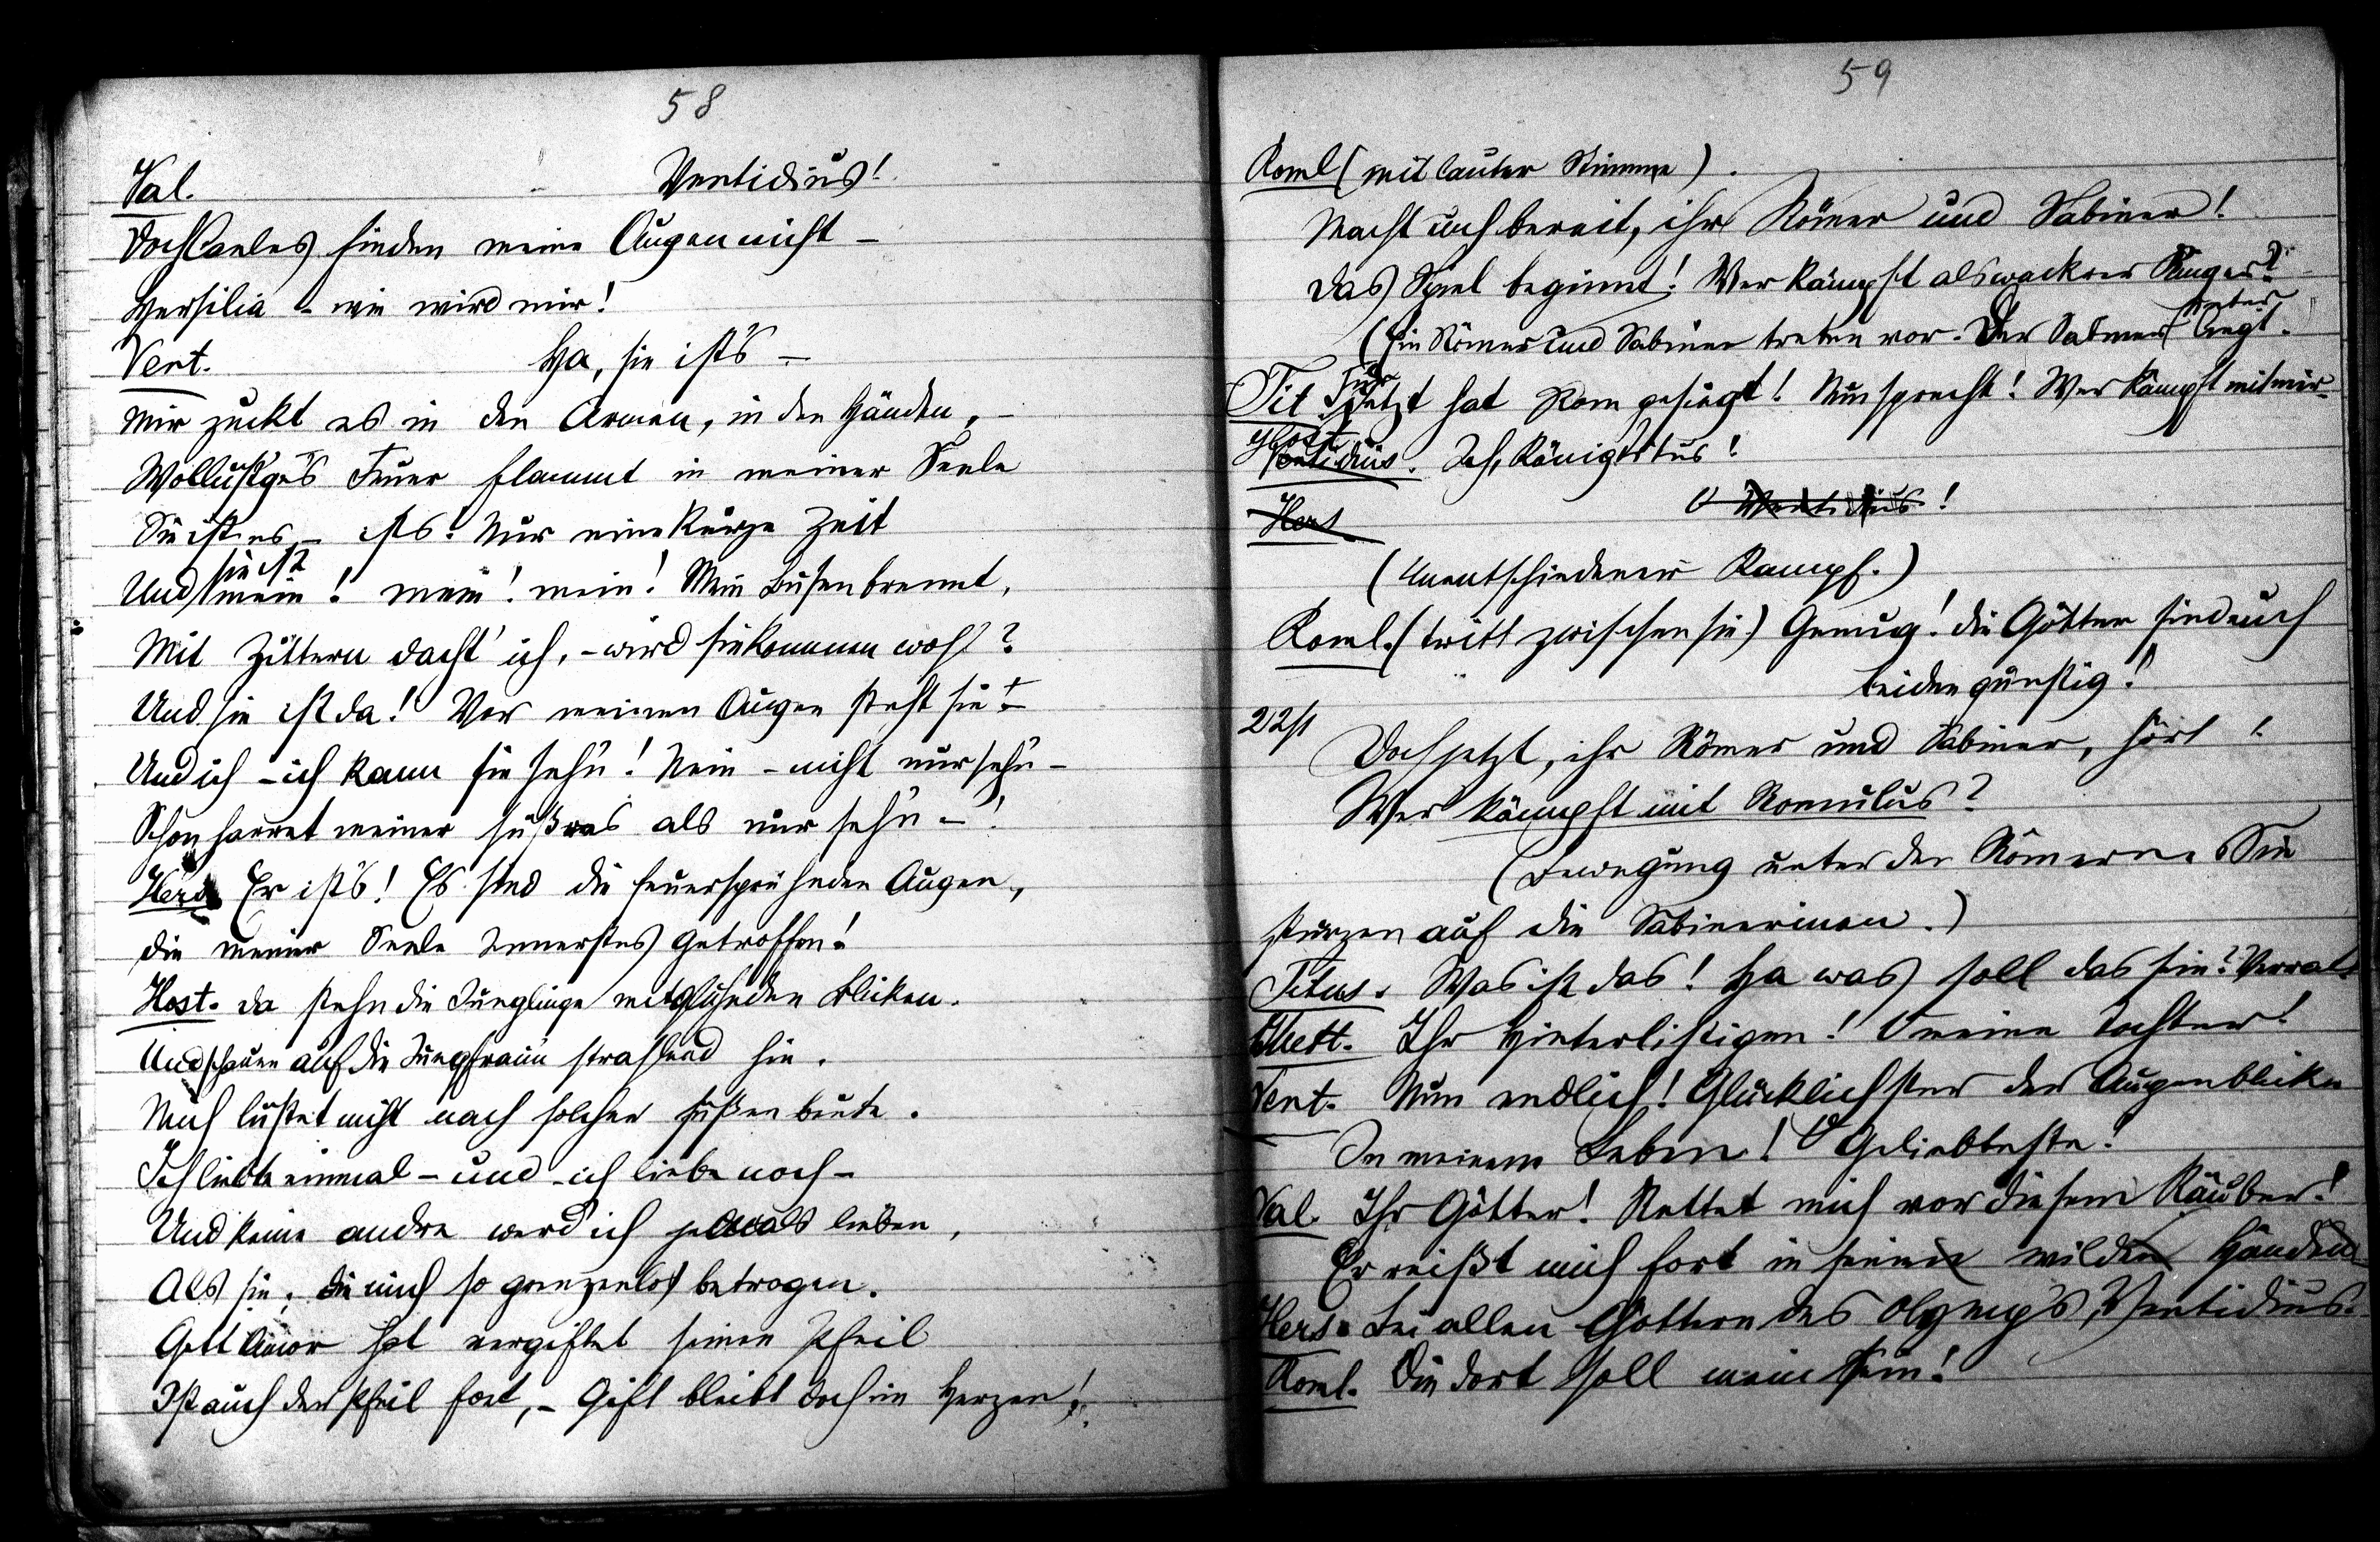 58
Val. Ventidius!
Doch Caeles finden meine Augen nicht –
Hersilia – wie wird mir!
Vent. Ha, sie ist's –
Mir zuckt es in den Armen, in den Händen, –
Wollust'ges Feuer flammt in meiner Seele
Sie ist es – ist's! Nur eine kurze Zeit
sie ist
Und mein! mein! mein! Mein Busen brennt,
Mit Zittern dacht' ich, – wird sie kommen wohl?
Und sie ist da! Vor meinen Augen steht sie! –
Und ich – ich kann sie sehn! Nein – nicht nur sehn –
Schon harret meiner süßres als nur sehn – !
Hers. Er ist's! Es sind die feuersprühnden Augen,
Die meiner Seele Innerstes getroffen!
Host. Da stehn die Jünglinge mit glühnden Blicken.
Und schauen auf die Jungfraun strahlend hin.
Mich lüstet nicht nach solcher süßen Beute.
Ich liebte einmal – und ich liebe noch –
Und keine andre werd' ich jemals lieben,
Als sie, die mich so grenzenlos betrogen.
Gott Amor hat vergiftet seinen Pfeil
Ist auch der Pfeil fort, – Gift bleibt doch im Herzen!
59
Roml (mit lauter Stimme).
Macht euch bereit, ihr Römer und Sabiner!
Das Spiel beginnt! Wer kämpft als wackrer Ringer?
(Ein Römer und Sabiner treten vor. Der Sabiner unterliegt.
Tit Für jetzt hat Rom gesiegt! Nun sprecht! Wer kämpft mit mir
Host
Ventidius. Ich, König Titus!
Hers O Ventidius!
(Unentschiedener Kampf.)
Roml. (tritt zwischen sie) Genug! die Götter sind euch
beiden günstig!
22st
Doch jetzt, ihr Römer und Sabiner, hört!
Wer kämpft mit Romulus?
(Bewegung unter den Römern. Sie
stürzen auf die Sabinerinnen.)
Titus. Was ist das! Ha was soll das sein? Verrat
Mett. Ihr Hinterlistigen! O meine Tochter!
Vent. Nun endlich! Glücklichster der Augenblicke
In meinem Leben! O Geliebteste!
Val. Ihr Götter! Rettet mich vor diesem Räuber!
Er reißt mich fort in seinen wilden Händen
Hers. Bei allen Göttern des Olymp's, Ventidius.
Roml. Die dort soll mein sein!